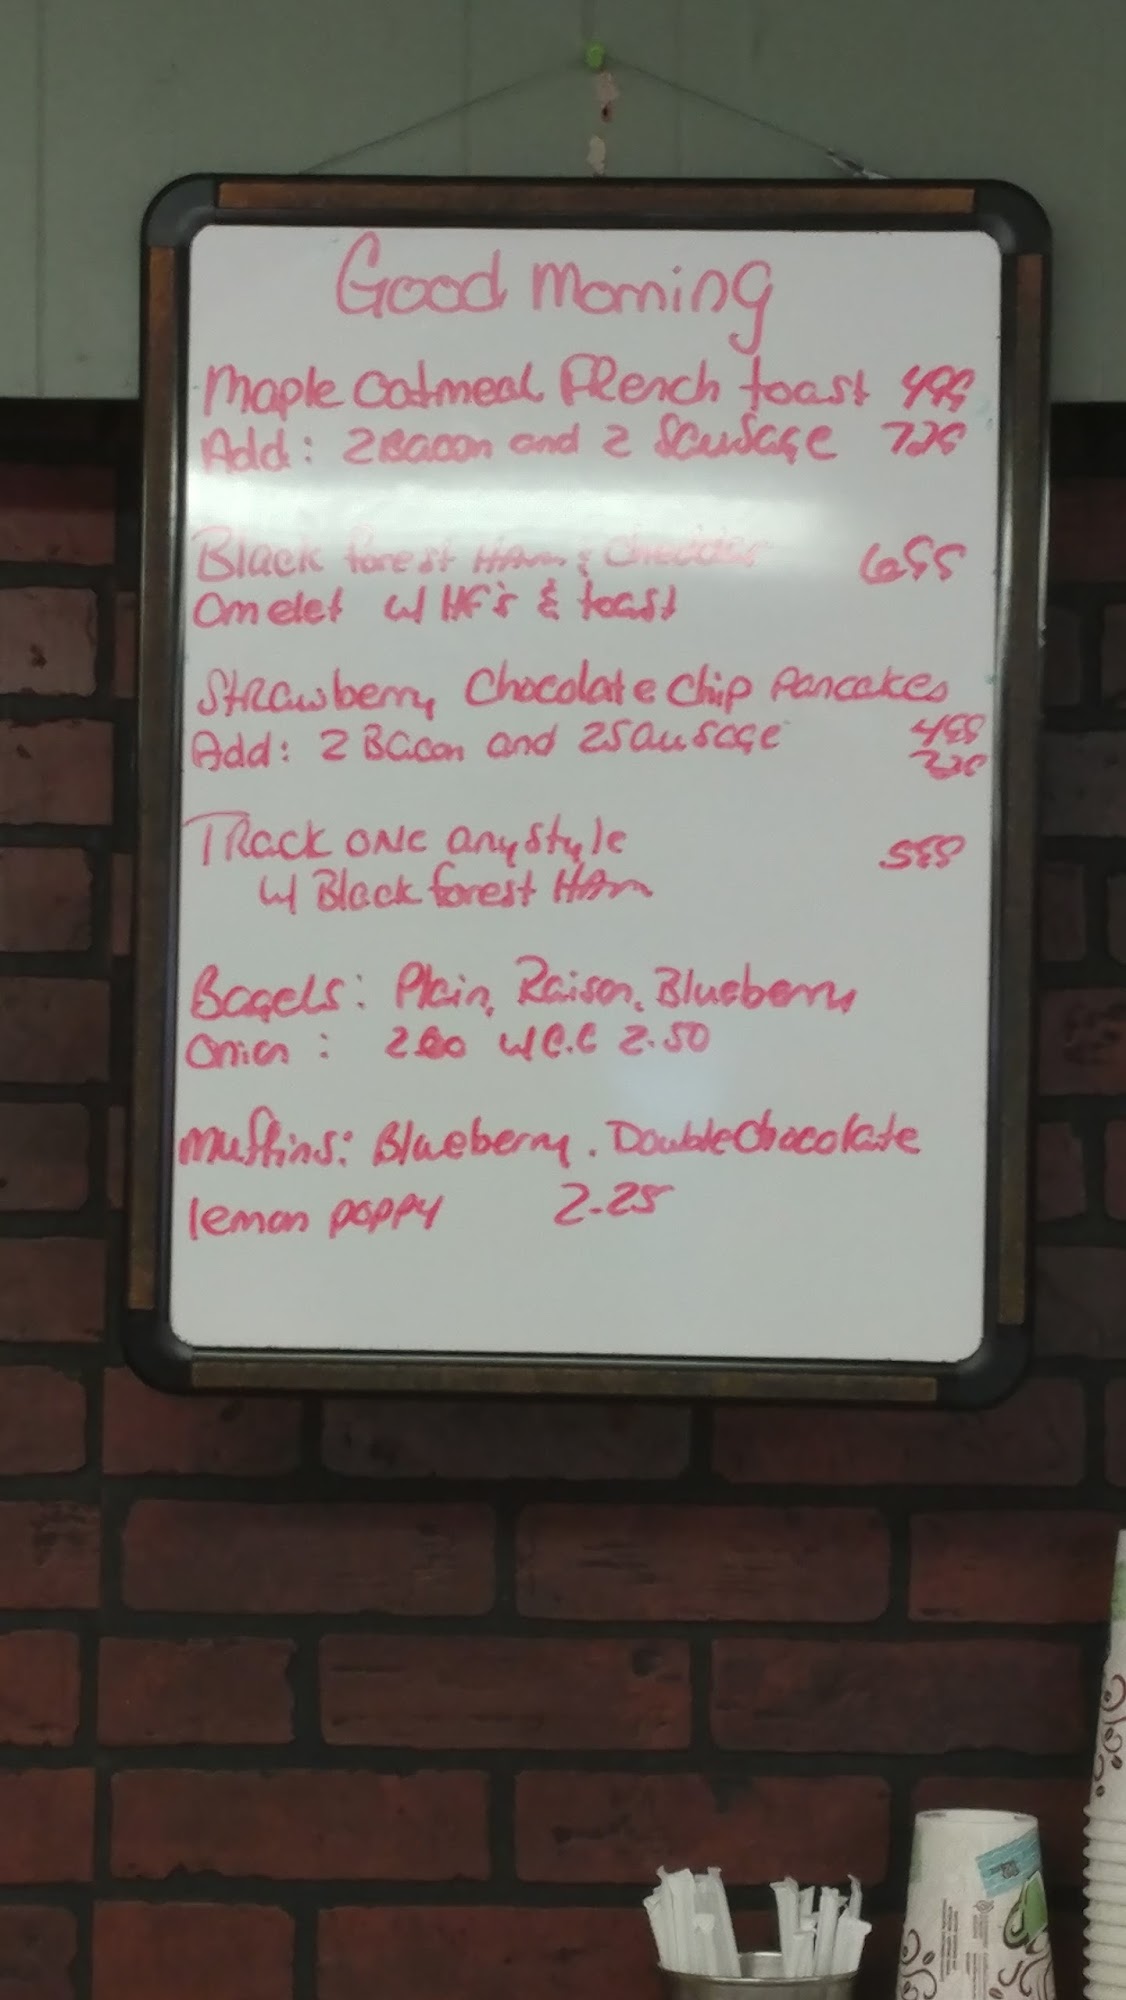 Good morning
Maple Oatmeal French toast 499
Add: 2 Bacon and 2 Sausage 725
Black forest HAm & Cheddar 655
Omelet w/ HF's & toast
Strawberry Chocolate Chip Pancakes
499
Add: 2 Bacon and 2 Sausage 725
TRack ONE any style 599
w/ Black forest HAm
Bagels: Plain, Raison, Blueberry
Onion : 200 w/ C.C 2.50
Muffins: Blueberry. Double Chocolate
lemon poppy 2.25